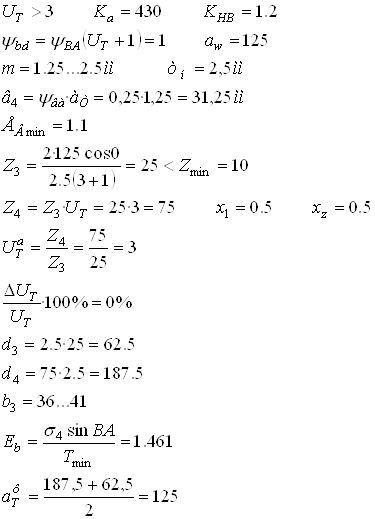 U_T > 3 K_a = 430 K_HB = 1.2
ψ_bd = ψ_BA(U_T + 1) = 1 a_w = 125
m = 1.25...2.5ìì ò_í = 2,5ìì
â4 = ψ_âà·à_Ò = 0,25·1,25 = 31,25ìì
Å_Âmin = 1.1
Z_3 = 2·125 cos0 / 2.5(3+1) = 25 < Z_min = 10
Z_4 = Z_3·U_T = 25·3 = 75 x_1 = 0.5 x_z = 0.5
U_T^a = Z_4 / Z_3 = 75 / 25 = 3
ΔU_T / U_T ·100% = 0%
d_3 = 2.5·25 = 62.5
d_4 = 75·2.5 = 187.5
b_3 = 36...41
E_b = σ_4 sin BA / T_min = 1.461
a_T^ô = 187,5 + 62,5 / 2 = 125